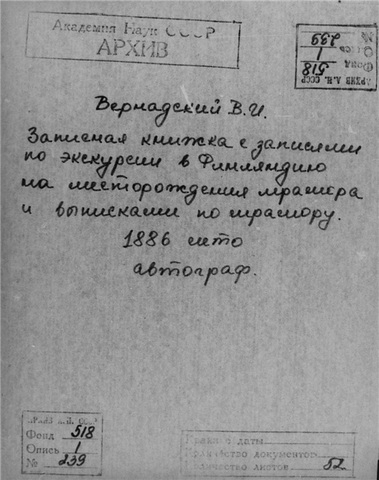 Академия Наук СССР
АРХИВ
АРХИВ А.Н. СССР
Фонд 518
Опись 1
№ 239
Вернадский В.И.
Записная книжка с записями
по экскурсии в Финляндию
на месторождения мрамора
и выписками по мрамору.
1886 лето
автограф.
АРХИВ А.Н. СССР
Фонд 518
Опись 1
№ 239
даты
Количество документов
Количество листов 52